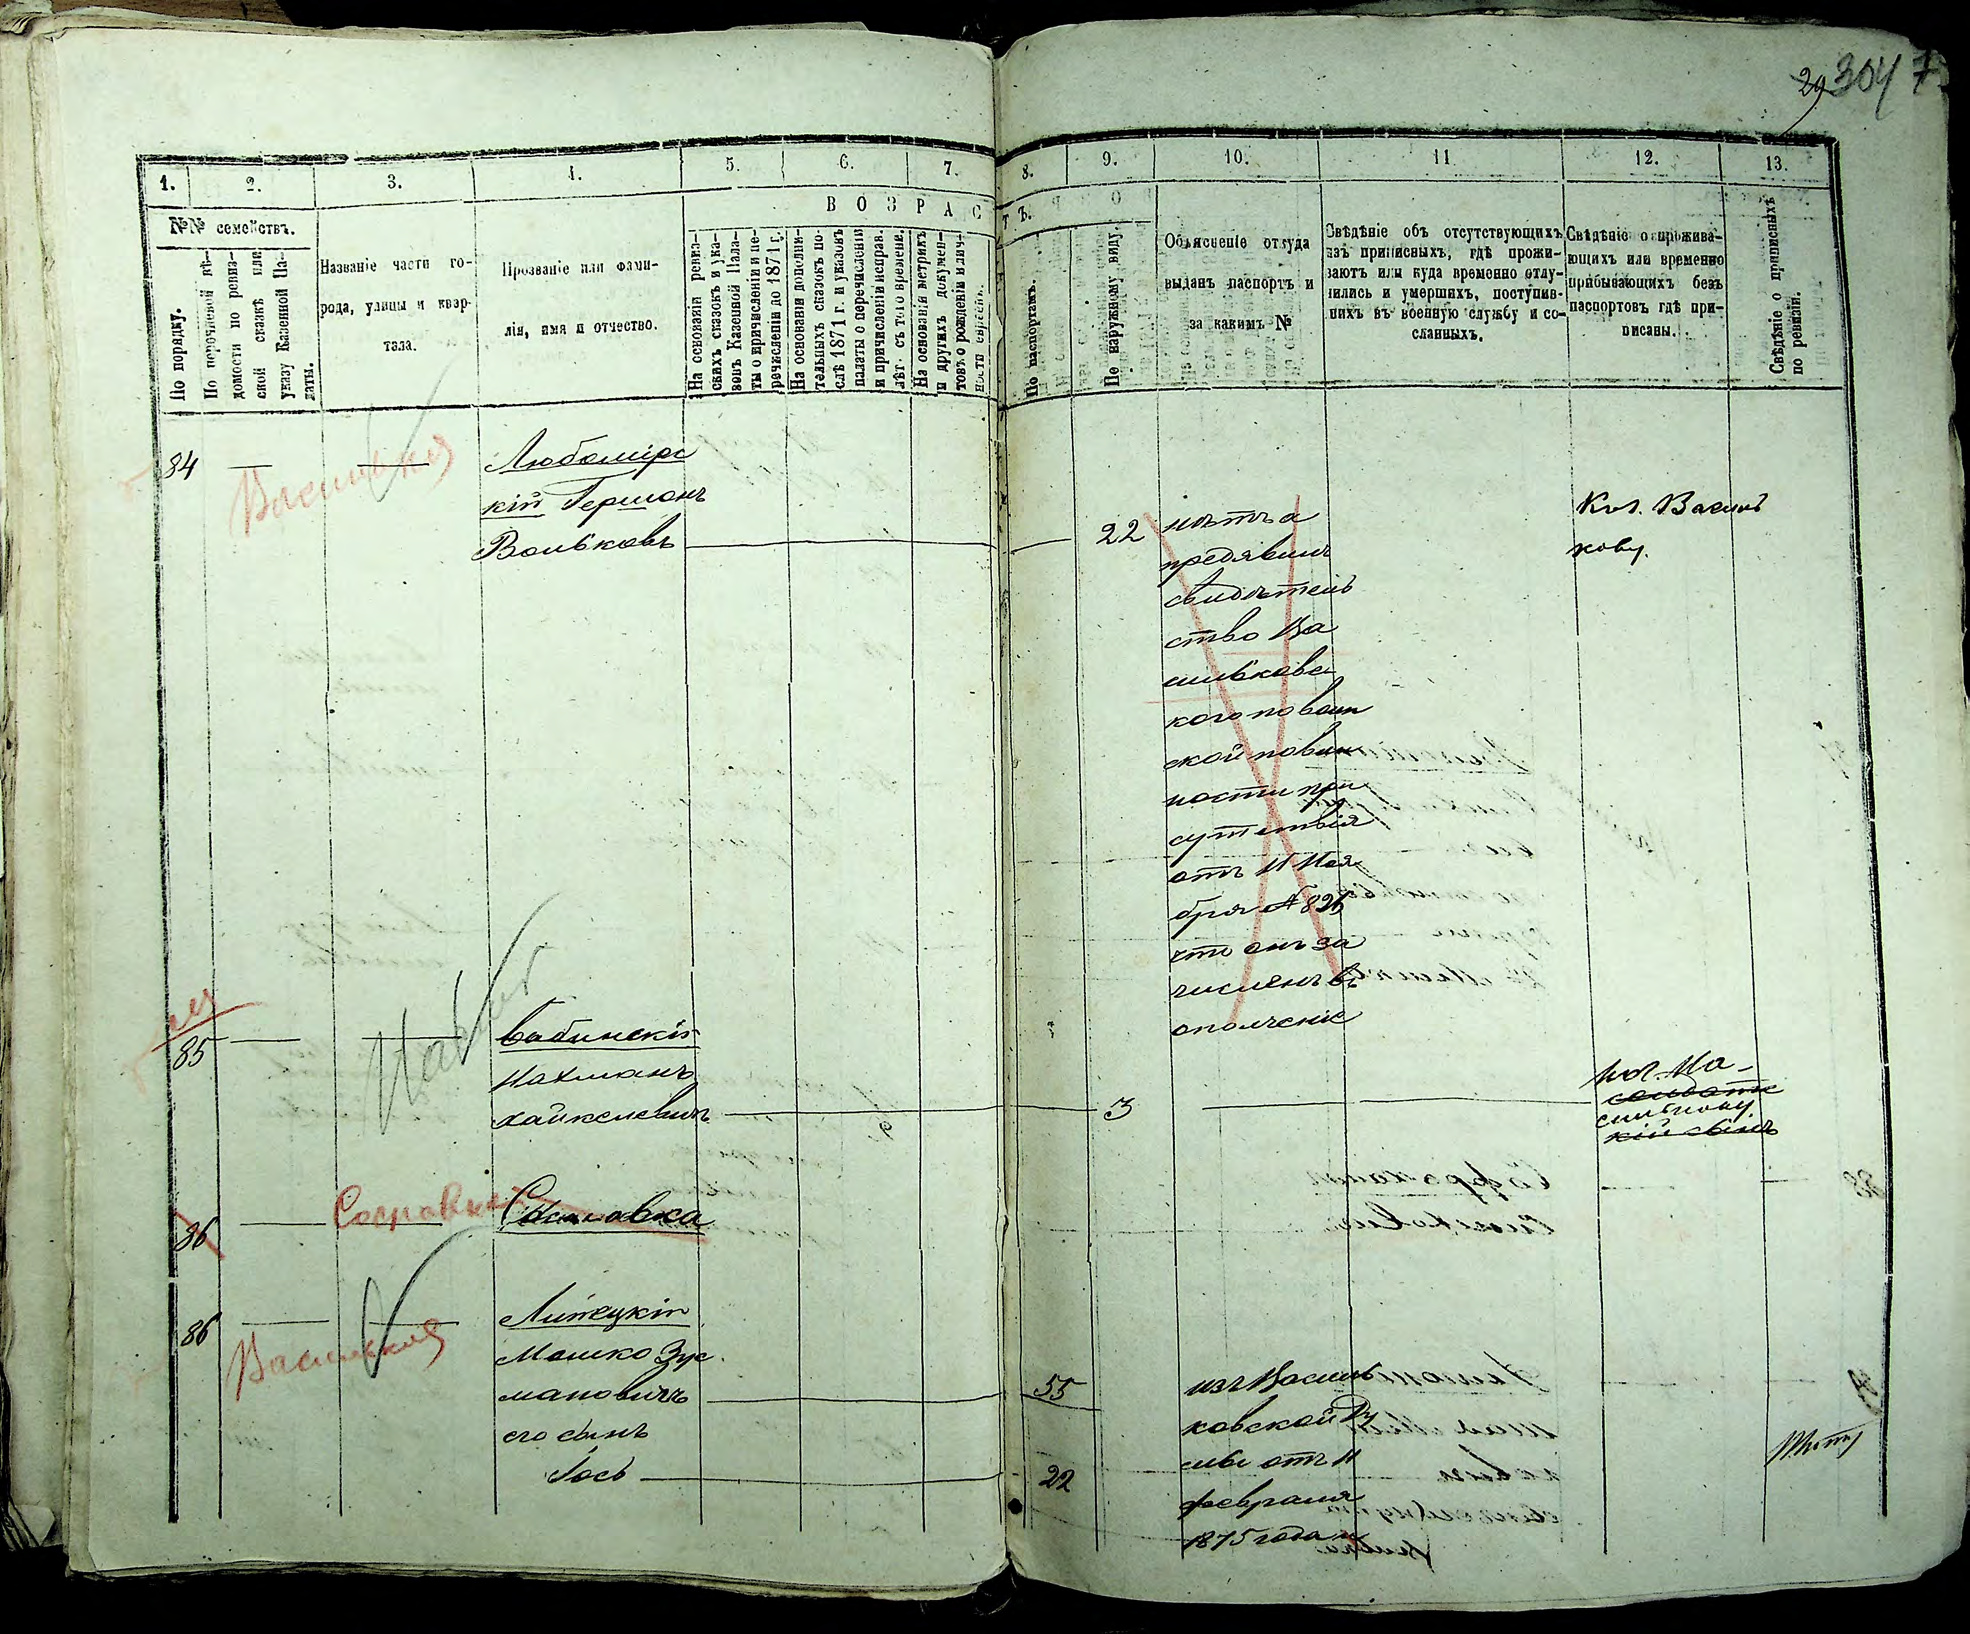 29 304
1.
2.
3.
4.
5.
6.
7.
8.
9.
10.
11
12.
13.
№№ семействъ.
По порядку.
По перечневой вѣ-
домости по ревиз-
ской сказкѣ или
указу Казенной Па-
латы.
Названіе части го-
рода, улицы и квар-
тала.
Прозваніе или фами-
лія, имя и отчество.
ВОЗРАСТЪ.
На основаніи ревиз-
скихъ сказокъ и ука-
зовъ Казенной Пала-
ты о причисленіи и пе-
речисленіи до 1871 г.
На основаніи дополни-
тельныхъ сказокъ по-
слѣ 1871 г. и указовъ
палаты о перечисленіи
и причисленіи исправ.
лѣт. съ того времени.
На основаніи метрикъ
и другихъ докумен-
товъ о рожденіи
По паспортамъ.
По наружному виду.
Объясненіе откуда
выданъ паспортъ и
за какимъ №
Свѣдѣніе объ отсутствующихъ
изъ приписныхъ, гдѣ прожи-
ваютъ или куда временно отлу-
чились и умершихъ, поступив-
шихъ въ военную службу и со-
сланныхъ.
Свѣдѣніе о прожива-
ющихъ или временно
прибывающихъ безъ
паспортовъ гдѣ при-
писаны.
Свѣдѣніе о приписныхъ
по ревизіи.
84
Любомірс
кій Гершонъ
Вольковъ
22
нѣтъ а
предявилъ
свидѣтель
ство Ва
сильковс
кого по воин
ской повин
ности при
сутствія
отъ 11 Ноя
бря № 826
что онъ за
численъ въ
ополченіе
Василь
кову.
85
Бабинскій
Нахманъ
Хайкелевичъ
3
86
Сосновка
86
Липецкій
Мошко Зус
мановичъ
его сынъ
Іось
55
22
изъ Василь
ковской Ду
мы отъ 11
февраля
1875 года